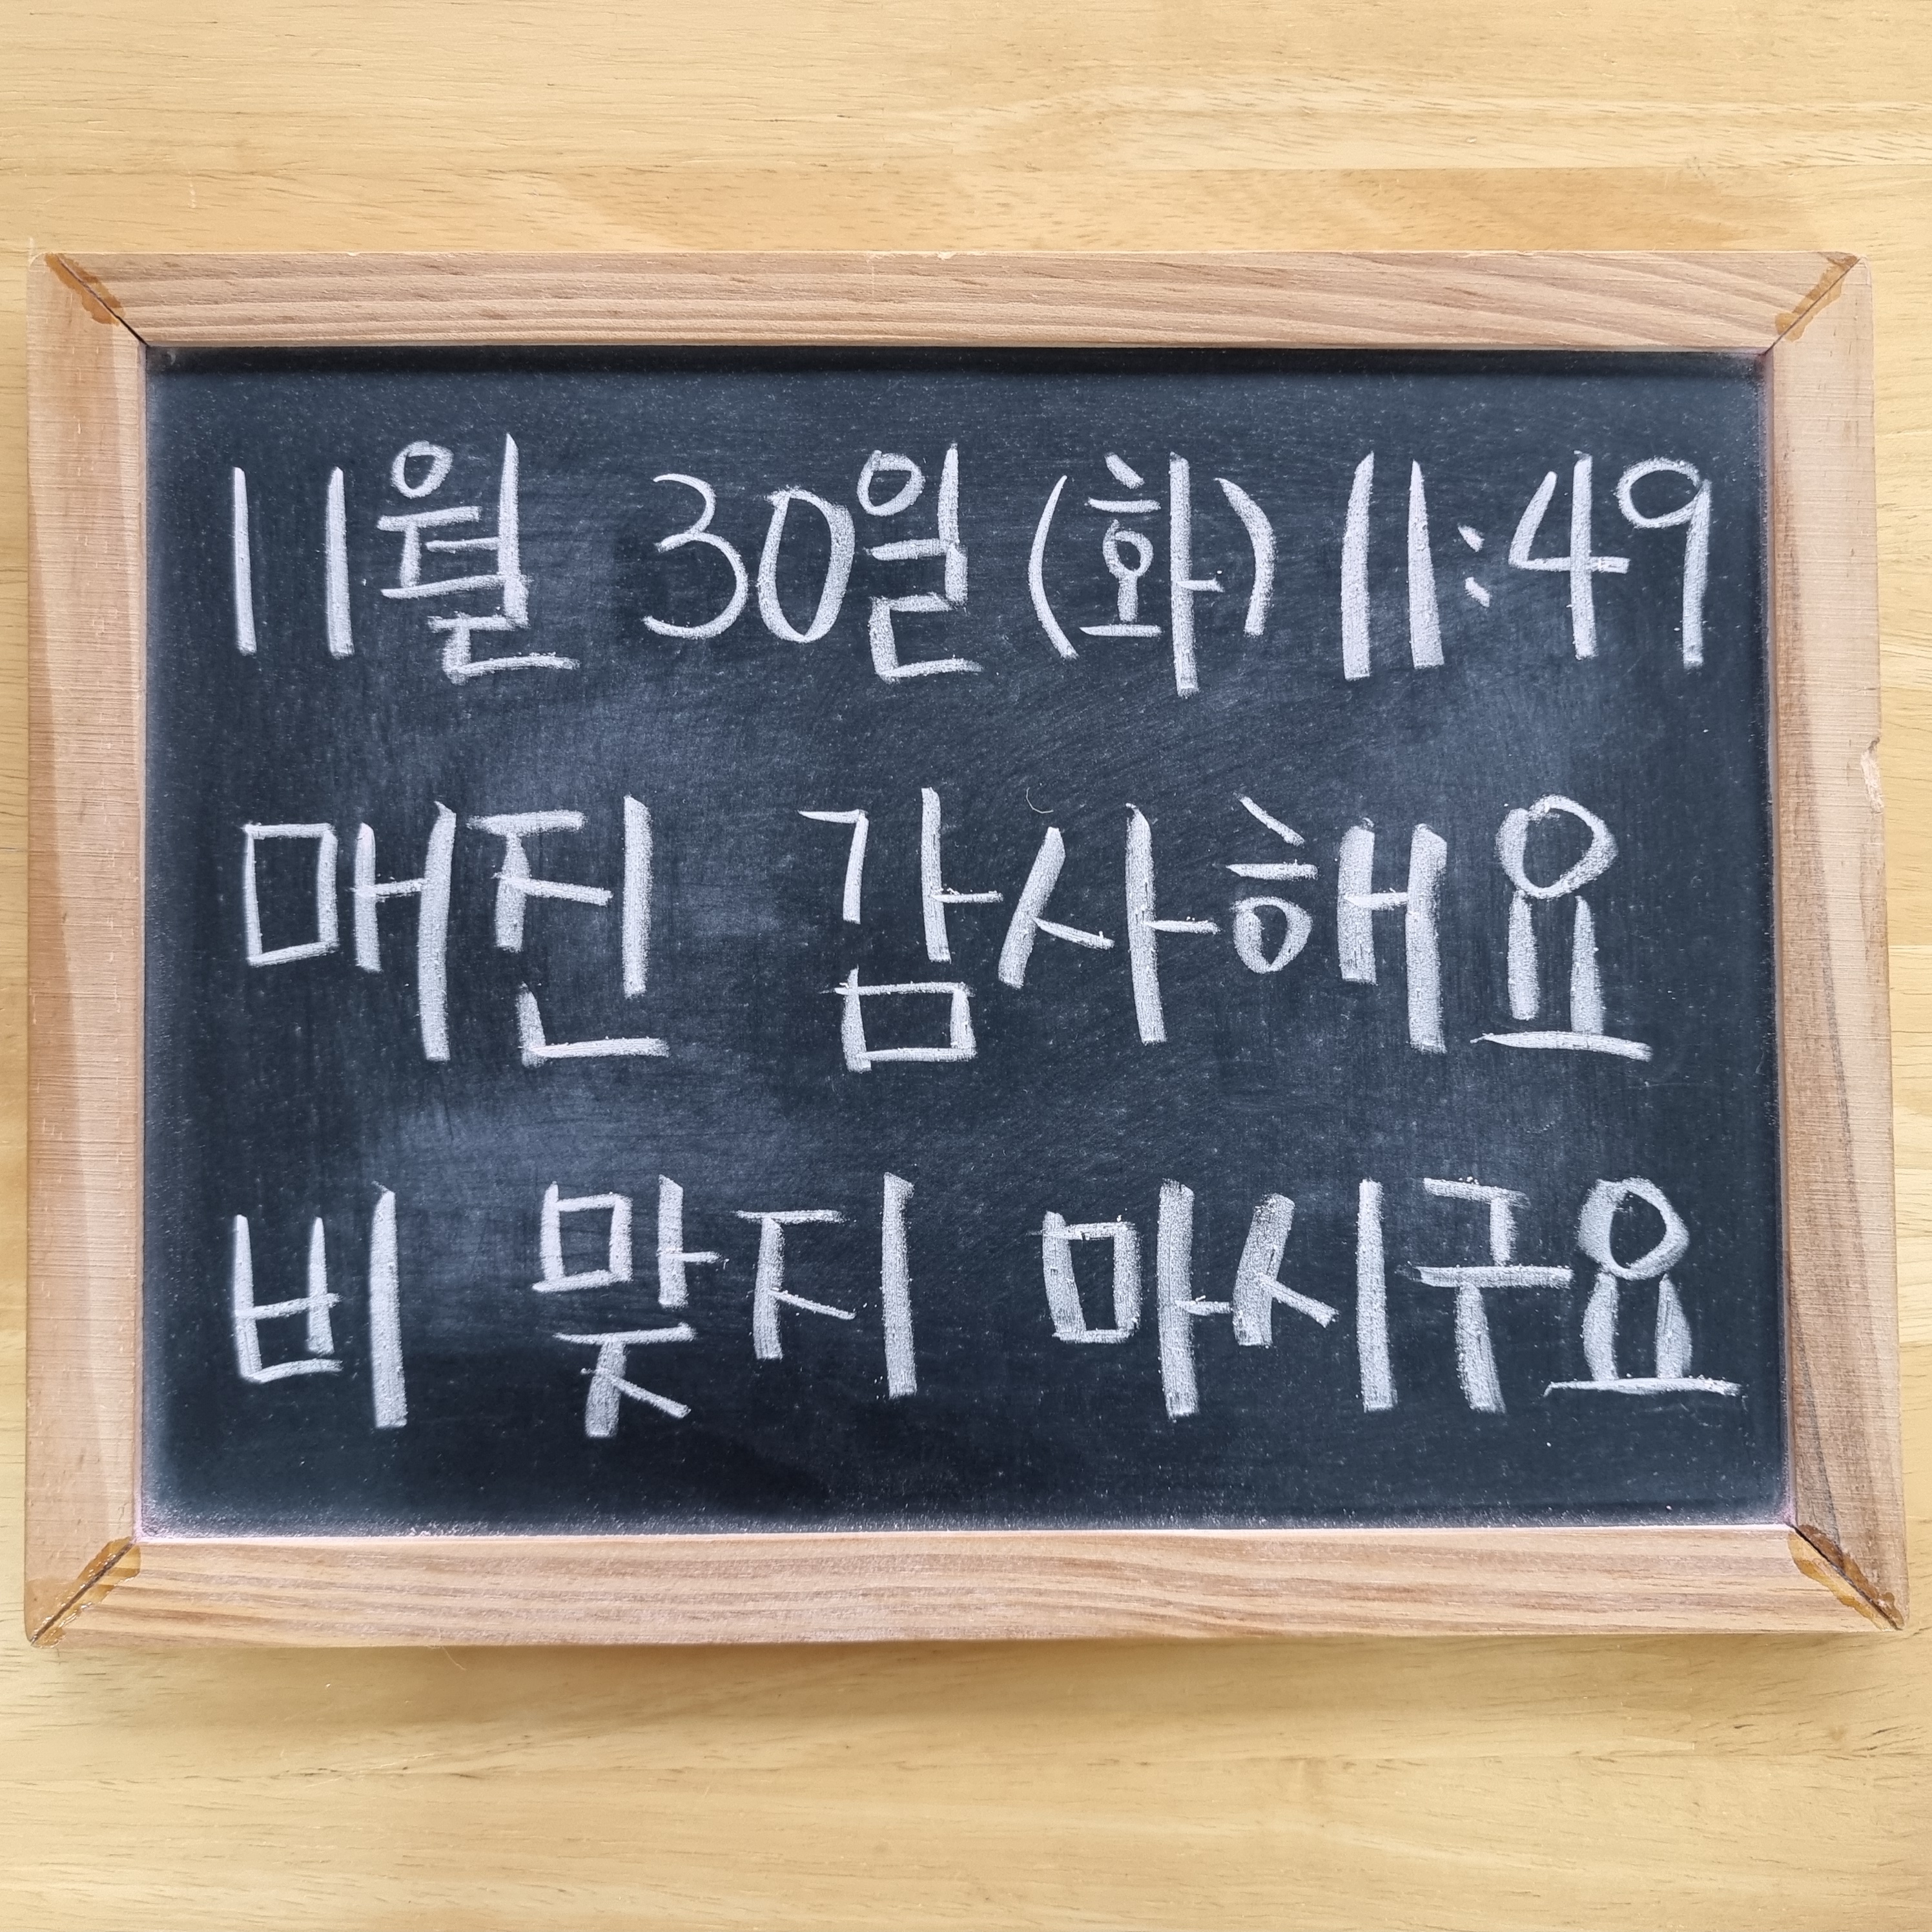 11월 30일 (화) 11:49
매진 감사해요
비 맞지 마시구요